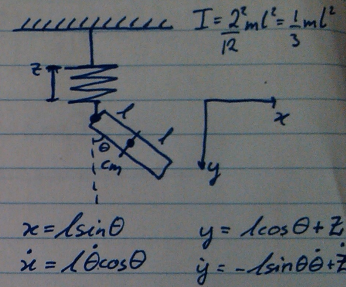 I = 2²/12 ml² = 1/3 ml²
z
l
l
θ
cm
x
y
x = lsinθ
y = lcosθ + z
ẋ = lθ̇cosθ
ẏ = -lsinθθ̇ + ż